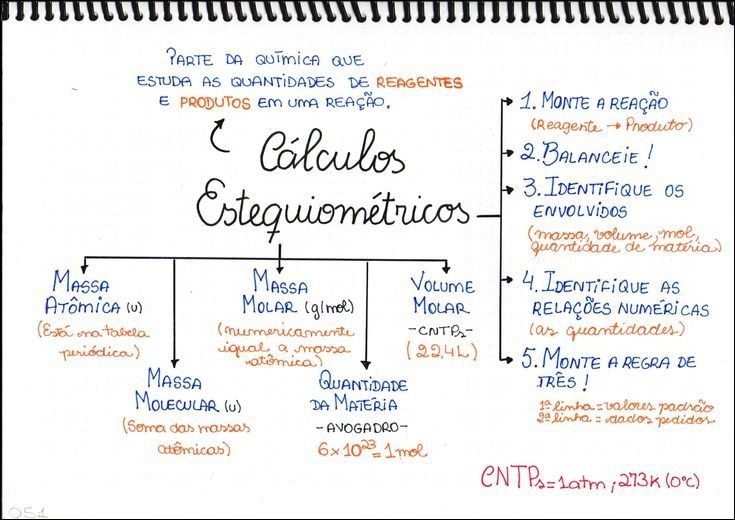 PARTE DA QUÍMICA QUE
ESTUDA AS QUANTIDADES DE REAGENTES
E PRODUTOS EM UMA REAÇÃO.
Cálculos
Estequiométricos
MASSA
ATÔMICA (u)
(Está na tabela
periódica)
MASSA
MOLECULAR (u)
(Soma das massas
atômicas)
MASSA
MOLAR (g/mol)
(numericamente
igual a massa
atômica)
QUANTIDADE
DA MATÉRIA
-AVOGADRO-
6x10²³=1mol
VOLUME
MOLAR
-CNTPs-
(22,4L)
1. MONTE A REAÇÃO
(Reagente → Produto)
2. BALANCEIE!
3. IDENTIFIQUE OS
ENVOLVIDOS
(massa, volume, mol,
quantidade de matéria)
4. IDENTIFIQUE AS
RELAÇÕES NUMÉRICAS
(as quantidades)
5. MONTE A REGRA DE
TRÊS!
1ª linha = valores padrão
2ª linha = dados pedidos
CNTPs = 1atm ; 273K (0°C)
OS1